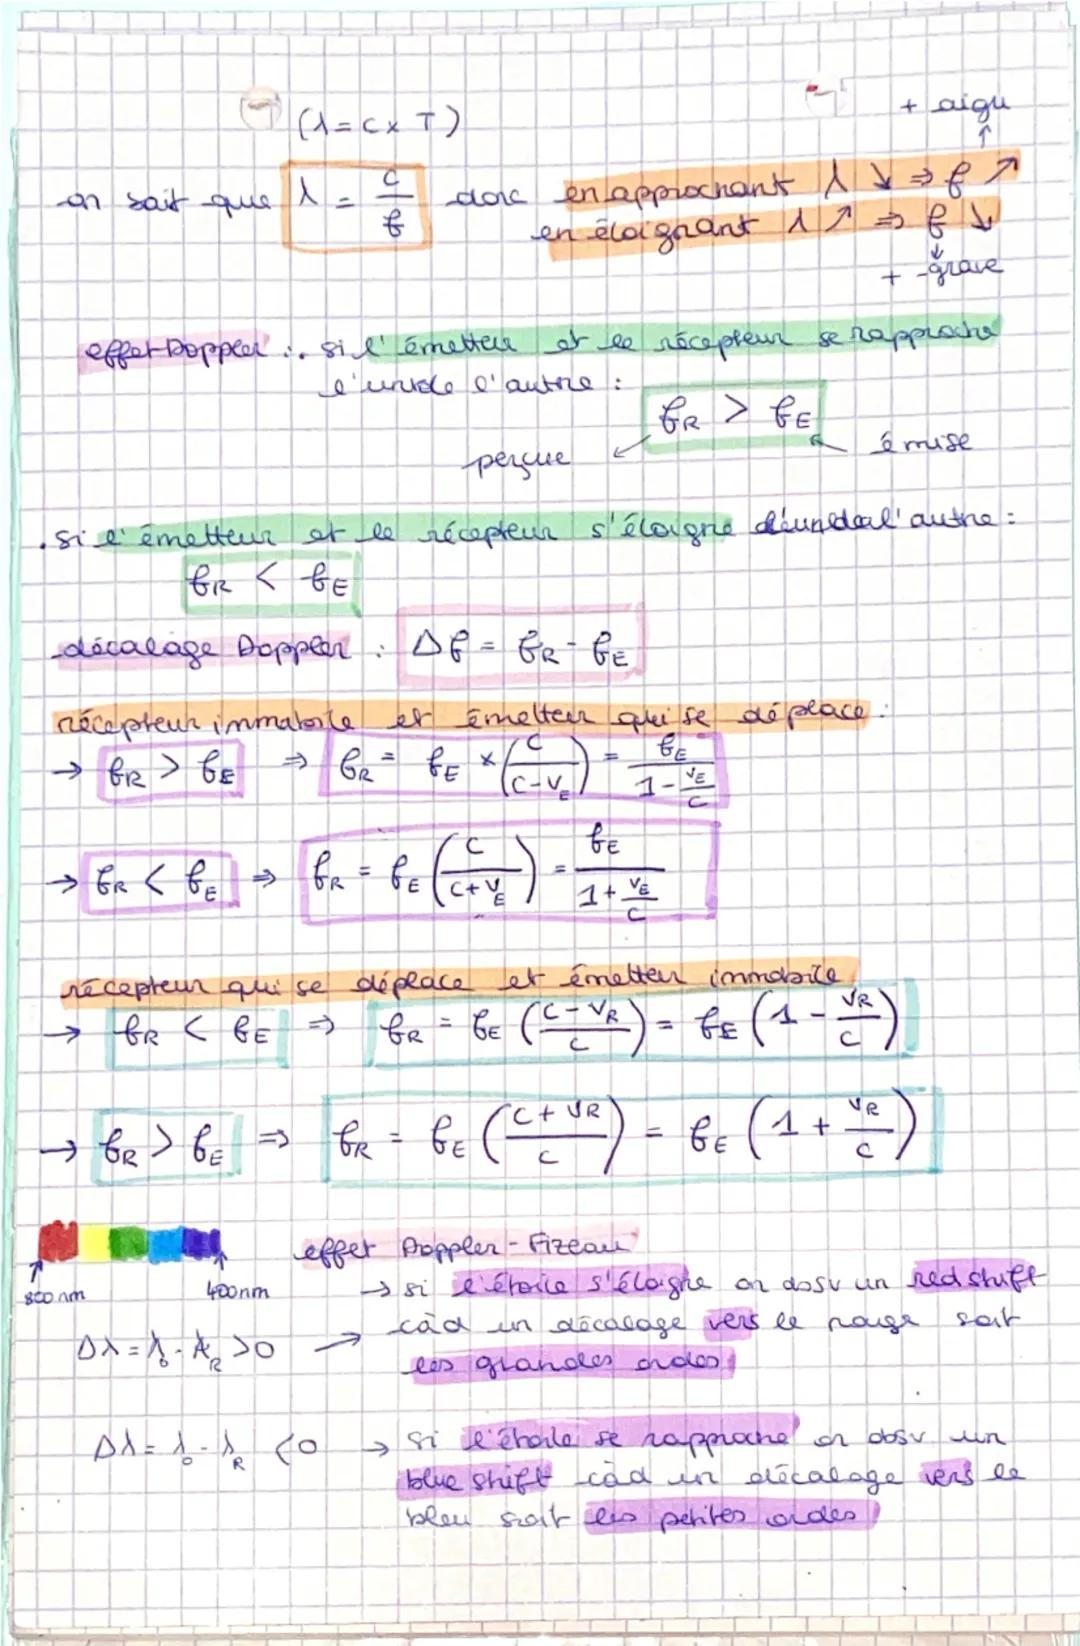 (λ = c × T)
+ aigu
↑
on sait que λ = c/f donc en approchant λ ↘ ⇒ f ↗
en éloignant λ ↗ ⇒ f ↘
↓
+ grave
effet Doppler : . si l'émetteur et le récepteur se rapproche
l'un de l'autre :
fR > fE
perçue
émise
. si l'émetteur et le récepteur s'éloigne l'un de l'autre :
fR < fE
décalage Doppler : Δf = fR - fE
récepteur immobile et émetteur qui se déplace :
→ fR > fE ⇒ fR = fE × (c/(c-vE)) = fE/(1 - vE/c)
→ fR < fE ⇒ fR = fE (c/(c+vE)) = fE/(1 + vE/c)
récepteur qui se déplace et émetteur immobile
→ fR < fE ⇒ fR = fE ((c-vR)/c) = fE (1 - vR/c)
→ fR > fE ⇒ fR = fE ((c+vR)/c) = fE (1 + vR/c)
effet Doppler-Fizeau
800 nm
400nm
→ si l'étoile s'éloigne on obsv un red shift
càd un décalage vers le rouge soit
les grandes ondes
Δλ = λ0 - λR > 0 →
Δλ = λ0 - λR < 0 → si l'étoile se rapproche on obsv un
blue shift càd un décalage vers le
bleu soit les petites ondes